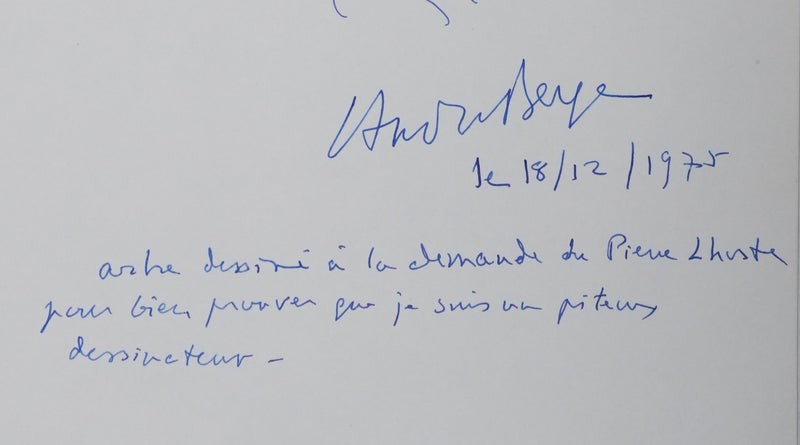 André Berge
le 18/12/1975
arbre dessiné à la demande de Pierre Lhoste
pour bien prouver que je suis un piteux
dessinateur -